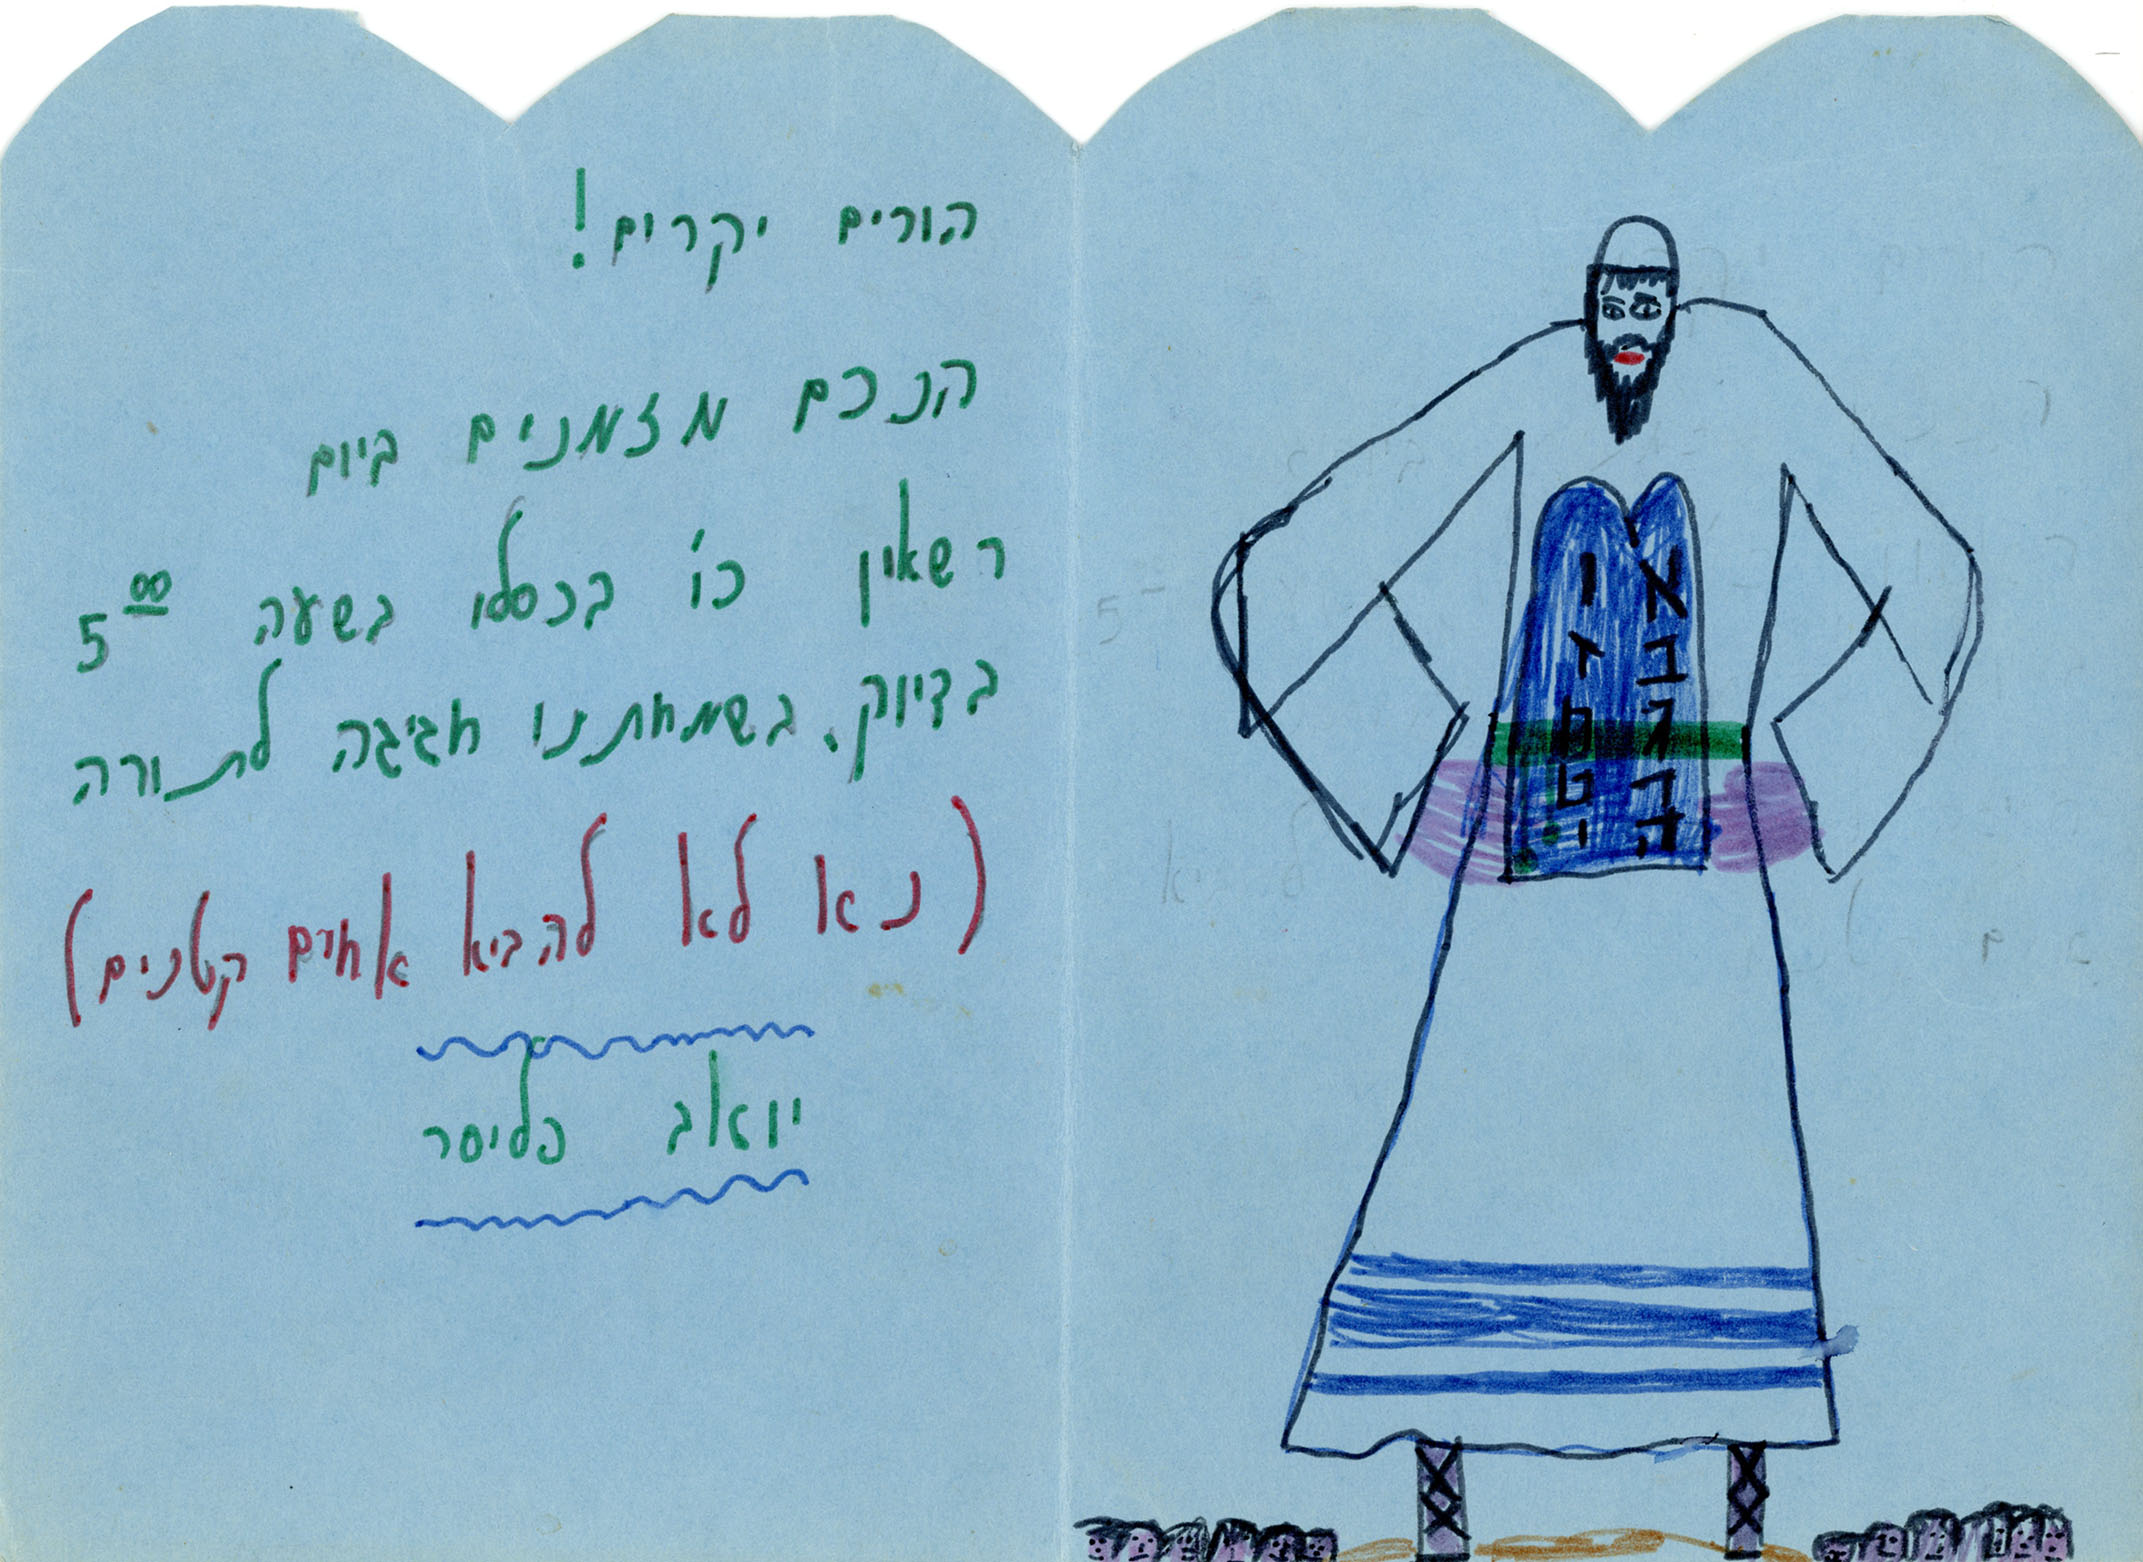 הורים יקרים!
הנכם מזמנים ביום
ראשון כ' בכסלו בשעה 5⁰⁰
בדיוק. בשמחתנו חגיגה לתורה
(נא לא להביא אחים קטנים)
יואב פליסר
א ו
ב ז
ג ח
ד ט
ה י